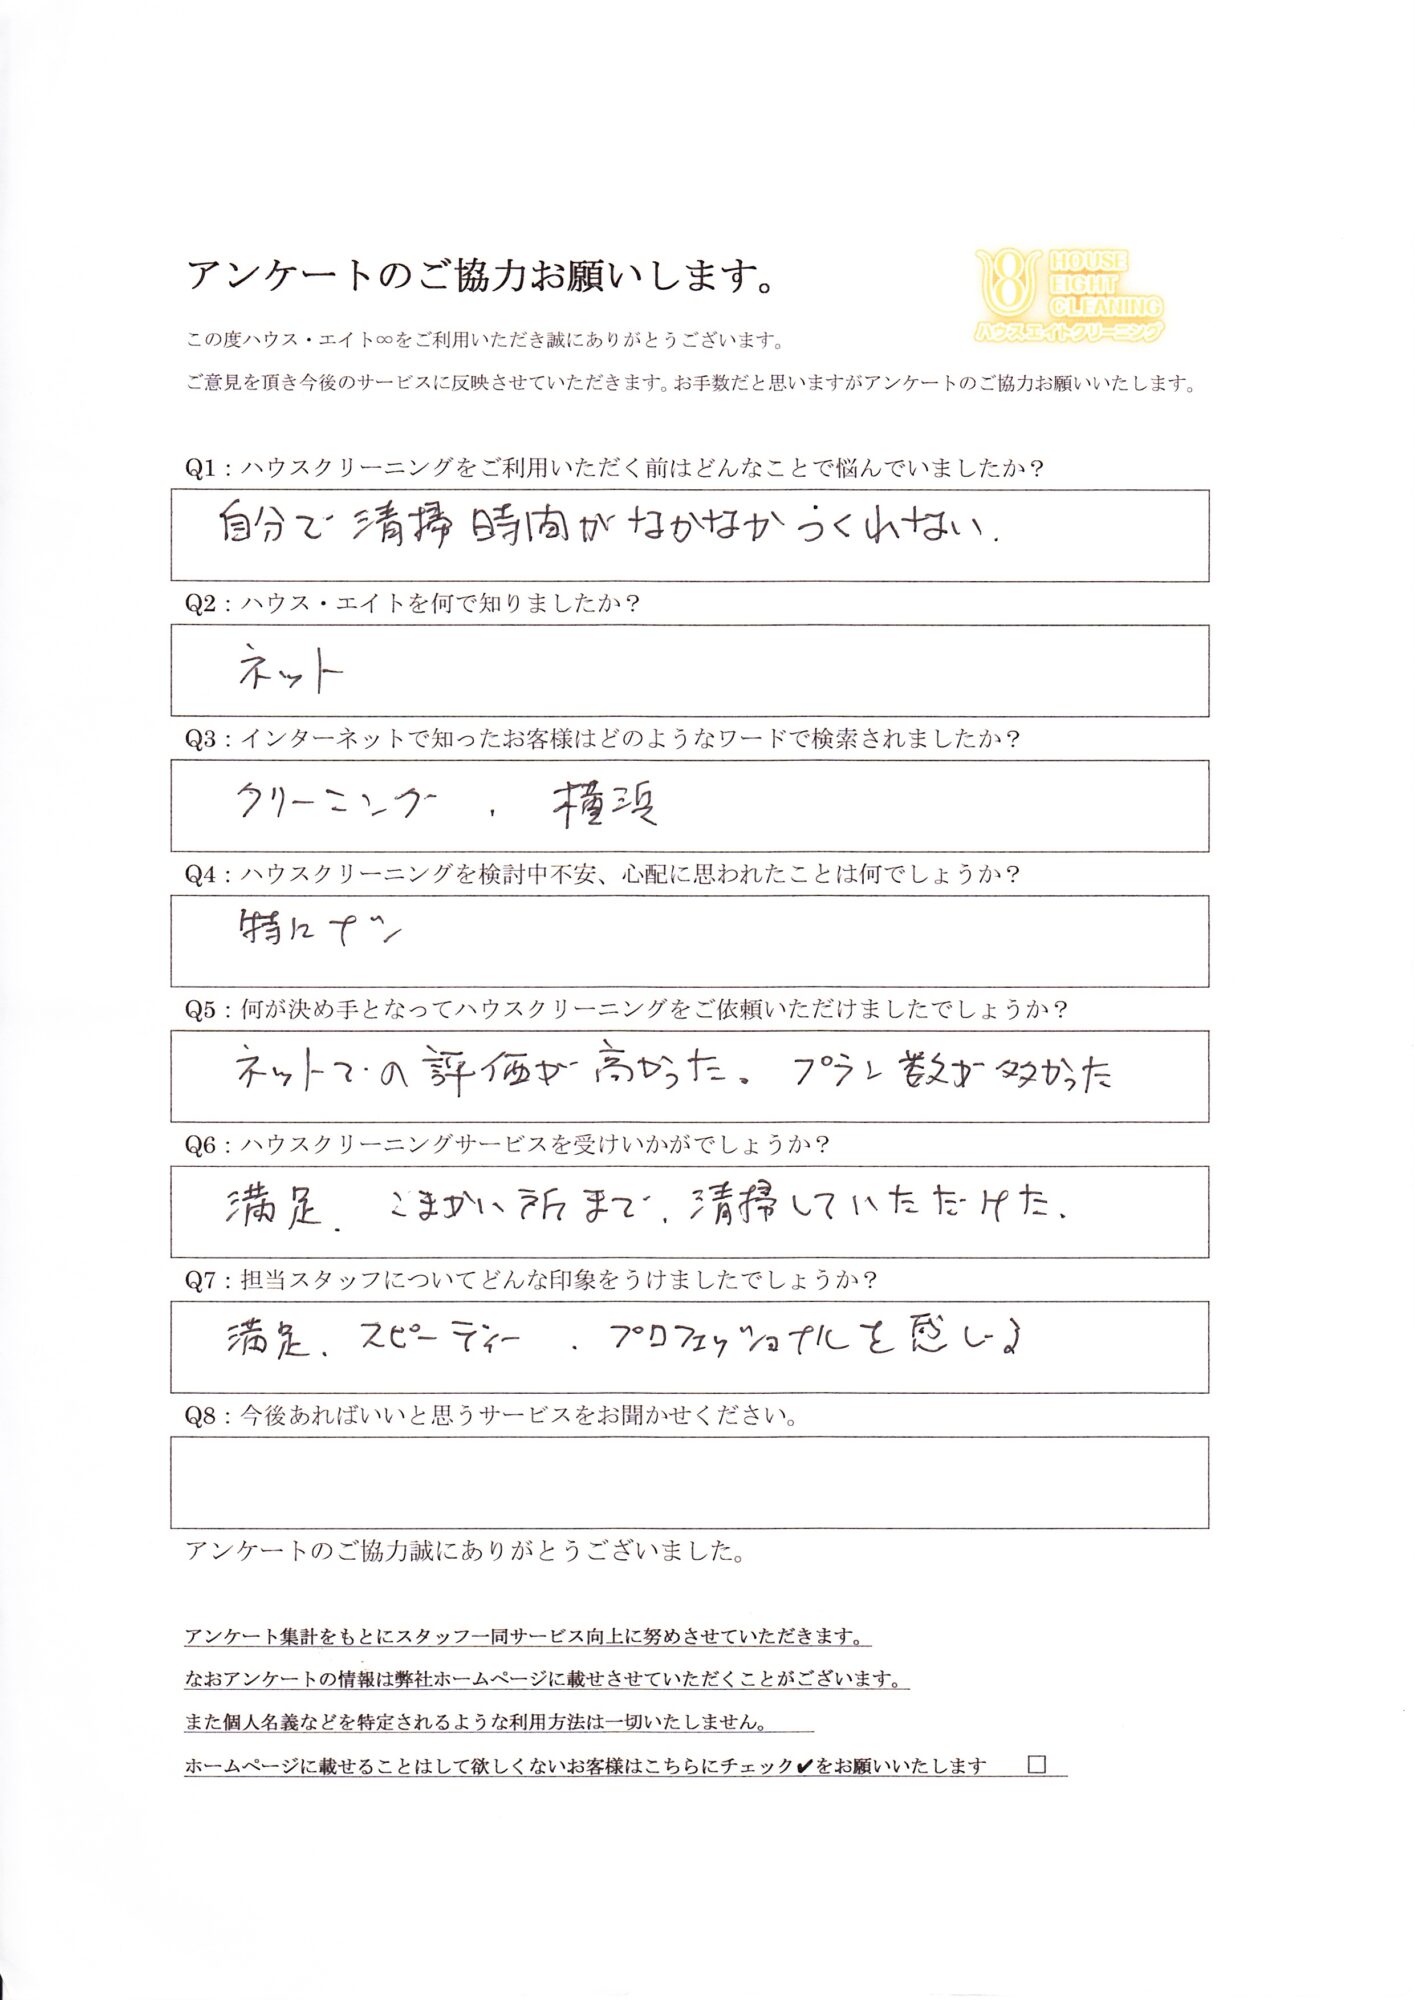 アンケートのご協力お願いします。
HOUSE
EIGHT
CLEANING
ハウスエイトクリーニング
この度ハウス・エイト∞をご利用いただき誠にありがとうございます。
ご意見を頂き今後のサービスに反映させていただきます。お手数だと思いますがアンケートのご協力お願いいたします。
Q1：ハウスクリーニングをご利用いただく前はどんなことで悩んでいましたか？
自分で清掃時間がなかなかつくれない.
Q2：ハウス・エイトを何で知りましたか？
ネット
Q3：インターネットで知ったお客様はどのようなワードで検索されましたか？
クリーニング、横浜
Q4：ハウスクリーニングを検討中不安、心配に思われたことは何でしょうか？
特にナシ
Q5：何が決め手となってハウスクリーニングをご依頼いただけましたでしょうか？
ネットでの評価が高かった。プラン数が多かった
Q6：ハウスクリーニングサービスを受けいかがでしょうか？
満足、こまかい所まで、清掃していただけた.
Q7：担当スタッフについてどんな印象をうけましたでしょうか？
満足、スピーディー、プロフェッショナルを感じる
Q8：今後あればいいと思うサービスをお聞かせください。
アンケートのご協力誠にありがとうございました。
アンケート集計をもとにスタッフ一同サービス向上に努めさせていただきます。
なおアンケートの情報は弊社ホームページに載せさせていただくことがございます。
また個人名義などを特定されるような利用方法は一切いたしません。
ホームページに載せることはして欲しくないお客様はこちらにチェック✔をお願いいたします □